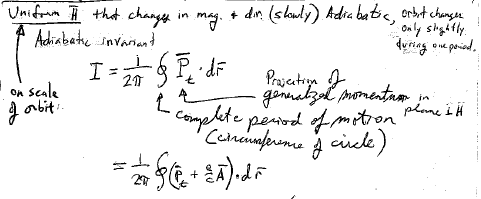 Uniform H̄ that changes in mag. + dir. (slowly) Adiabatic, orbit changes
only slightly
during one period.
Adiabatic invariant
on scale
of orbit.
I = 1/2π ∮ P̄_t · dr̄
Projection of
generalized momentum in
plane ⊥ H̄
complete period of motion
(circumference of circle)
= 1/2π ∮ (P̄_t + e/c Ā) · dr̄